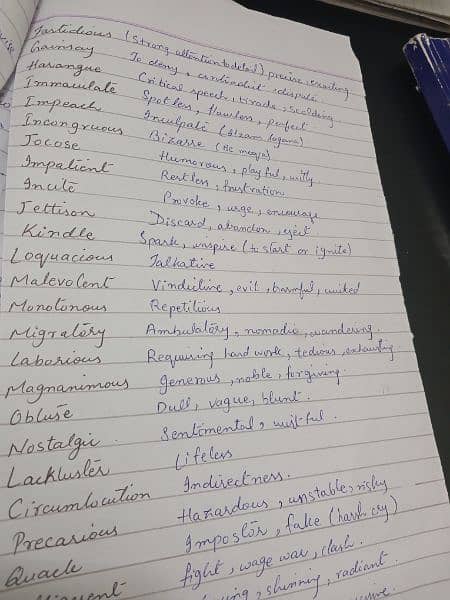 Fastidious (Strong attention to detail) precise, exacting
Gainsay To deny, contradict, dispute
Harangue Critical speech, tirade, scolding
Immaculate Spotless, flawless, perfect
Impeach Inculpate (Ilzam lagana)
Incongruous Bizarre
Jocose Humorous, playful, witty
Impatient Restless, frustration
Incite Provoke, urge, encourage
Jettison Discard, abandon, eject
Kindle Spark, inspire (to start or ignite)
Loquacious Talkative
Malevolent Vindictive, evil, harmful, wicked
Monotonous Repetitious
Migratory Ambulatory, nomadic, wandering.
Laborious Requiring hard work, tedious, exhausting
Magnanimous generous, noble, forgiving.
Obtuse Dull, vague, blunt.
Nostalgic Sentimental, wistful.
Lackluster Lifeless
Circumlocution Indirectness.
Precarious Hazardous, unstable, risky
Quack Impostor, fake (harsh cry)
fight, wage war, clash.
shinning, radiant.